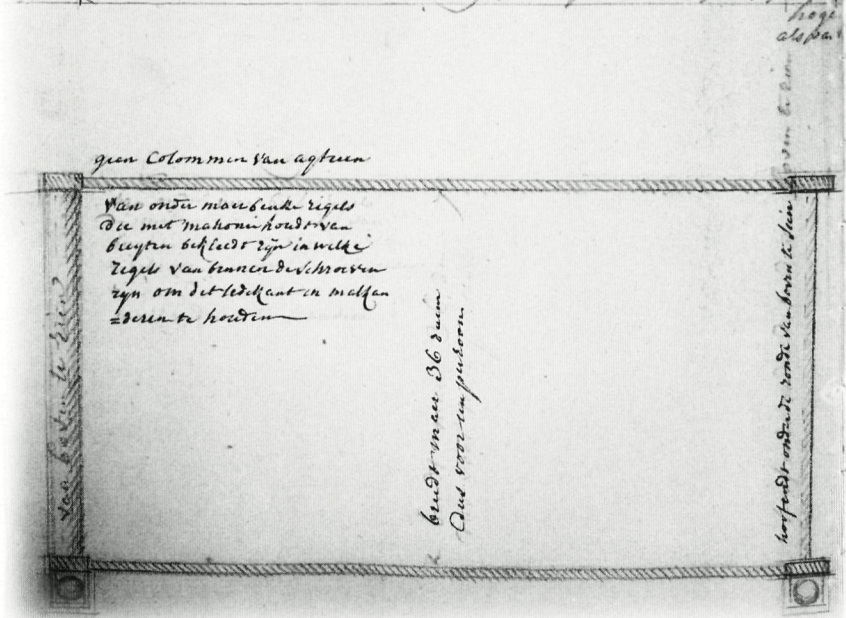 hoge
als
geen Colommen van agteren
van onder maer beuke rigels
die met mahonie houdt van
buyten bekleedt zijn in welke
regels van binnen de schroeven
zijn om det ledekant in malkan
=deren te houden
van boven te zien
breedt maer 36 duim
dus voor een persoon
hooftendt onder de ronde van boven te sien